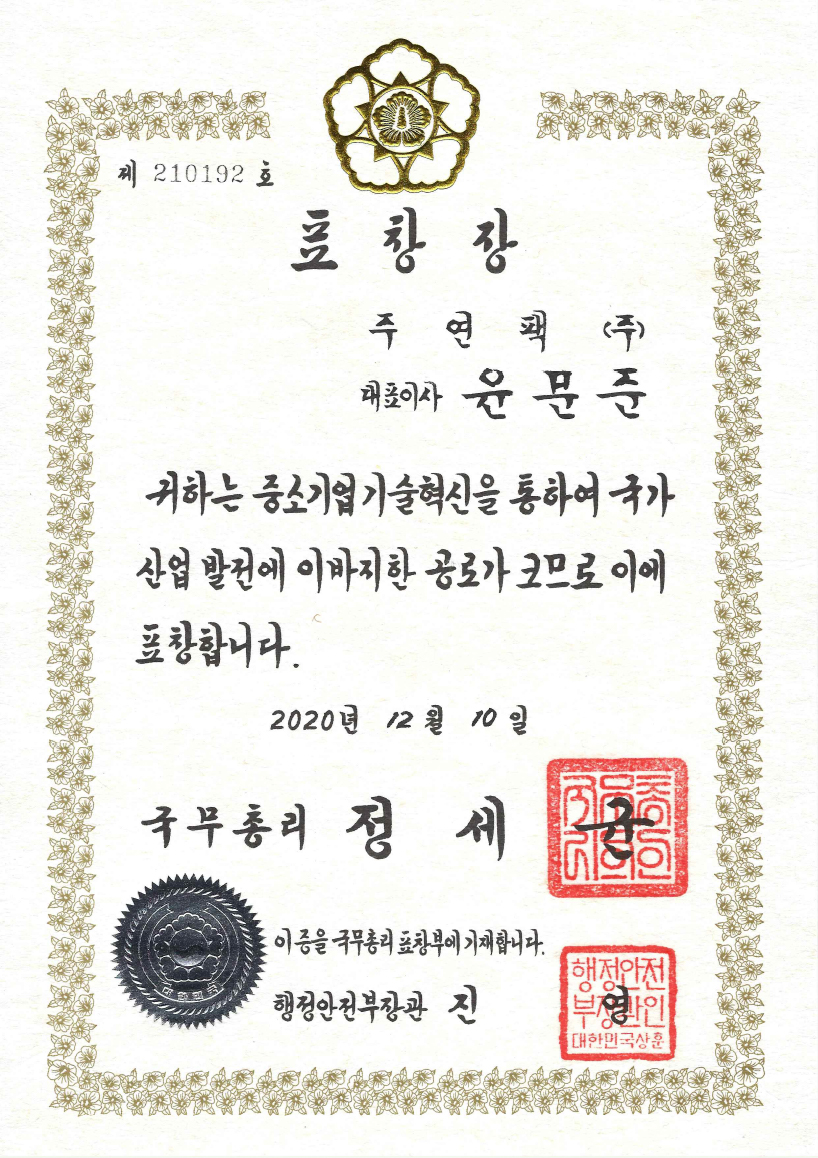 제 210192 호
표 창 장
주 연 팩 (주)
대표이사 윤 문 준
귀하는 중소기업기술혁신을 통하여 국가
산업 발전에 이바지한 공로가 크므로 이에
표창합니다.
2020년 12월 10일
국무총리 정 세 균
이 증을 국무총리 표창부에 기재합니다.
행정안전부장관 진 영
행정안전
부장관인
대한민국상훈
대한민국